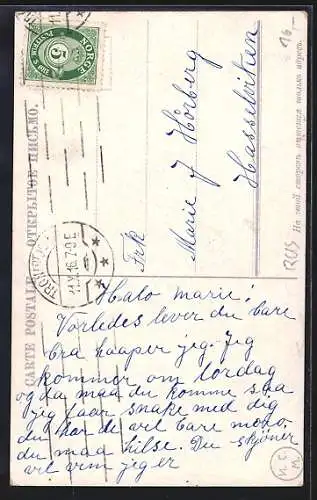 NORGE
5
POSTFRIM
CARTE POSTALE. ОТКРЫТОЕ ПИСЬМО.
11 V 16 7-9 E
Frk
Marie J Hörberg
Hasselviken
На этой сторонѣ пишется только адресъ.
16,–
RUS
Halo Marie!
Vorledes lever du bare
bra haaper jeg. Jeg
kommer om lordag
og da maa du komme saa
jeg faar snake med dig
du har de vel bare moro.
du maa hilse. Du skjöner
vel vem jeg er